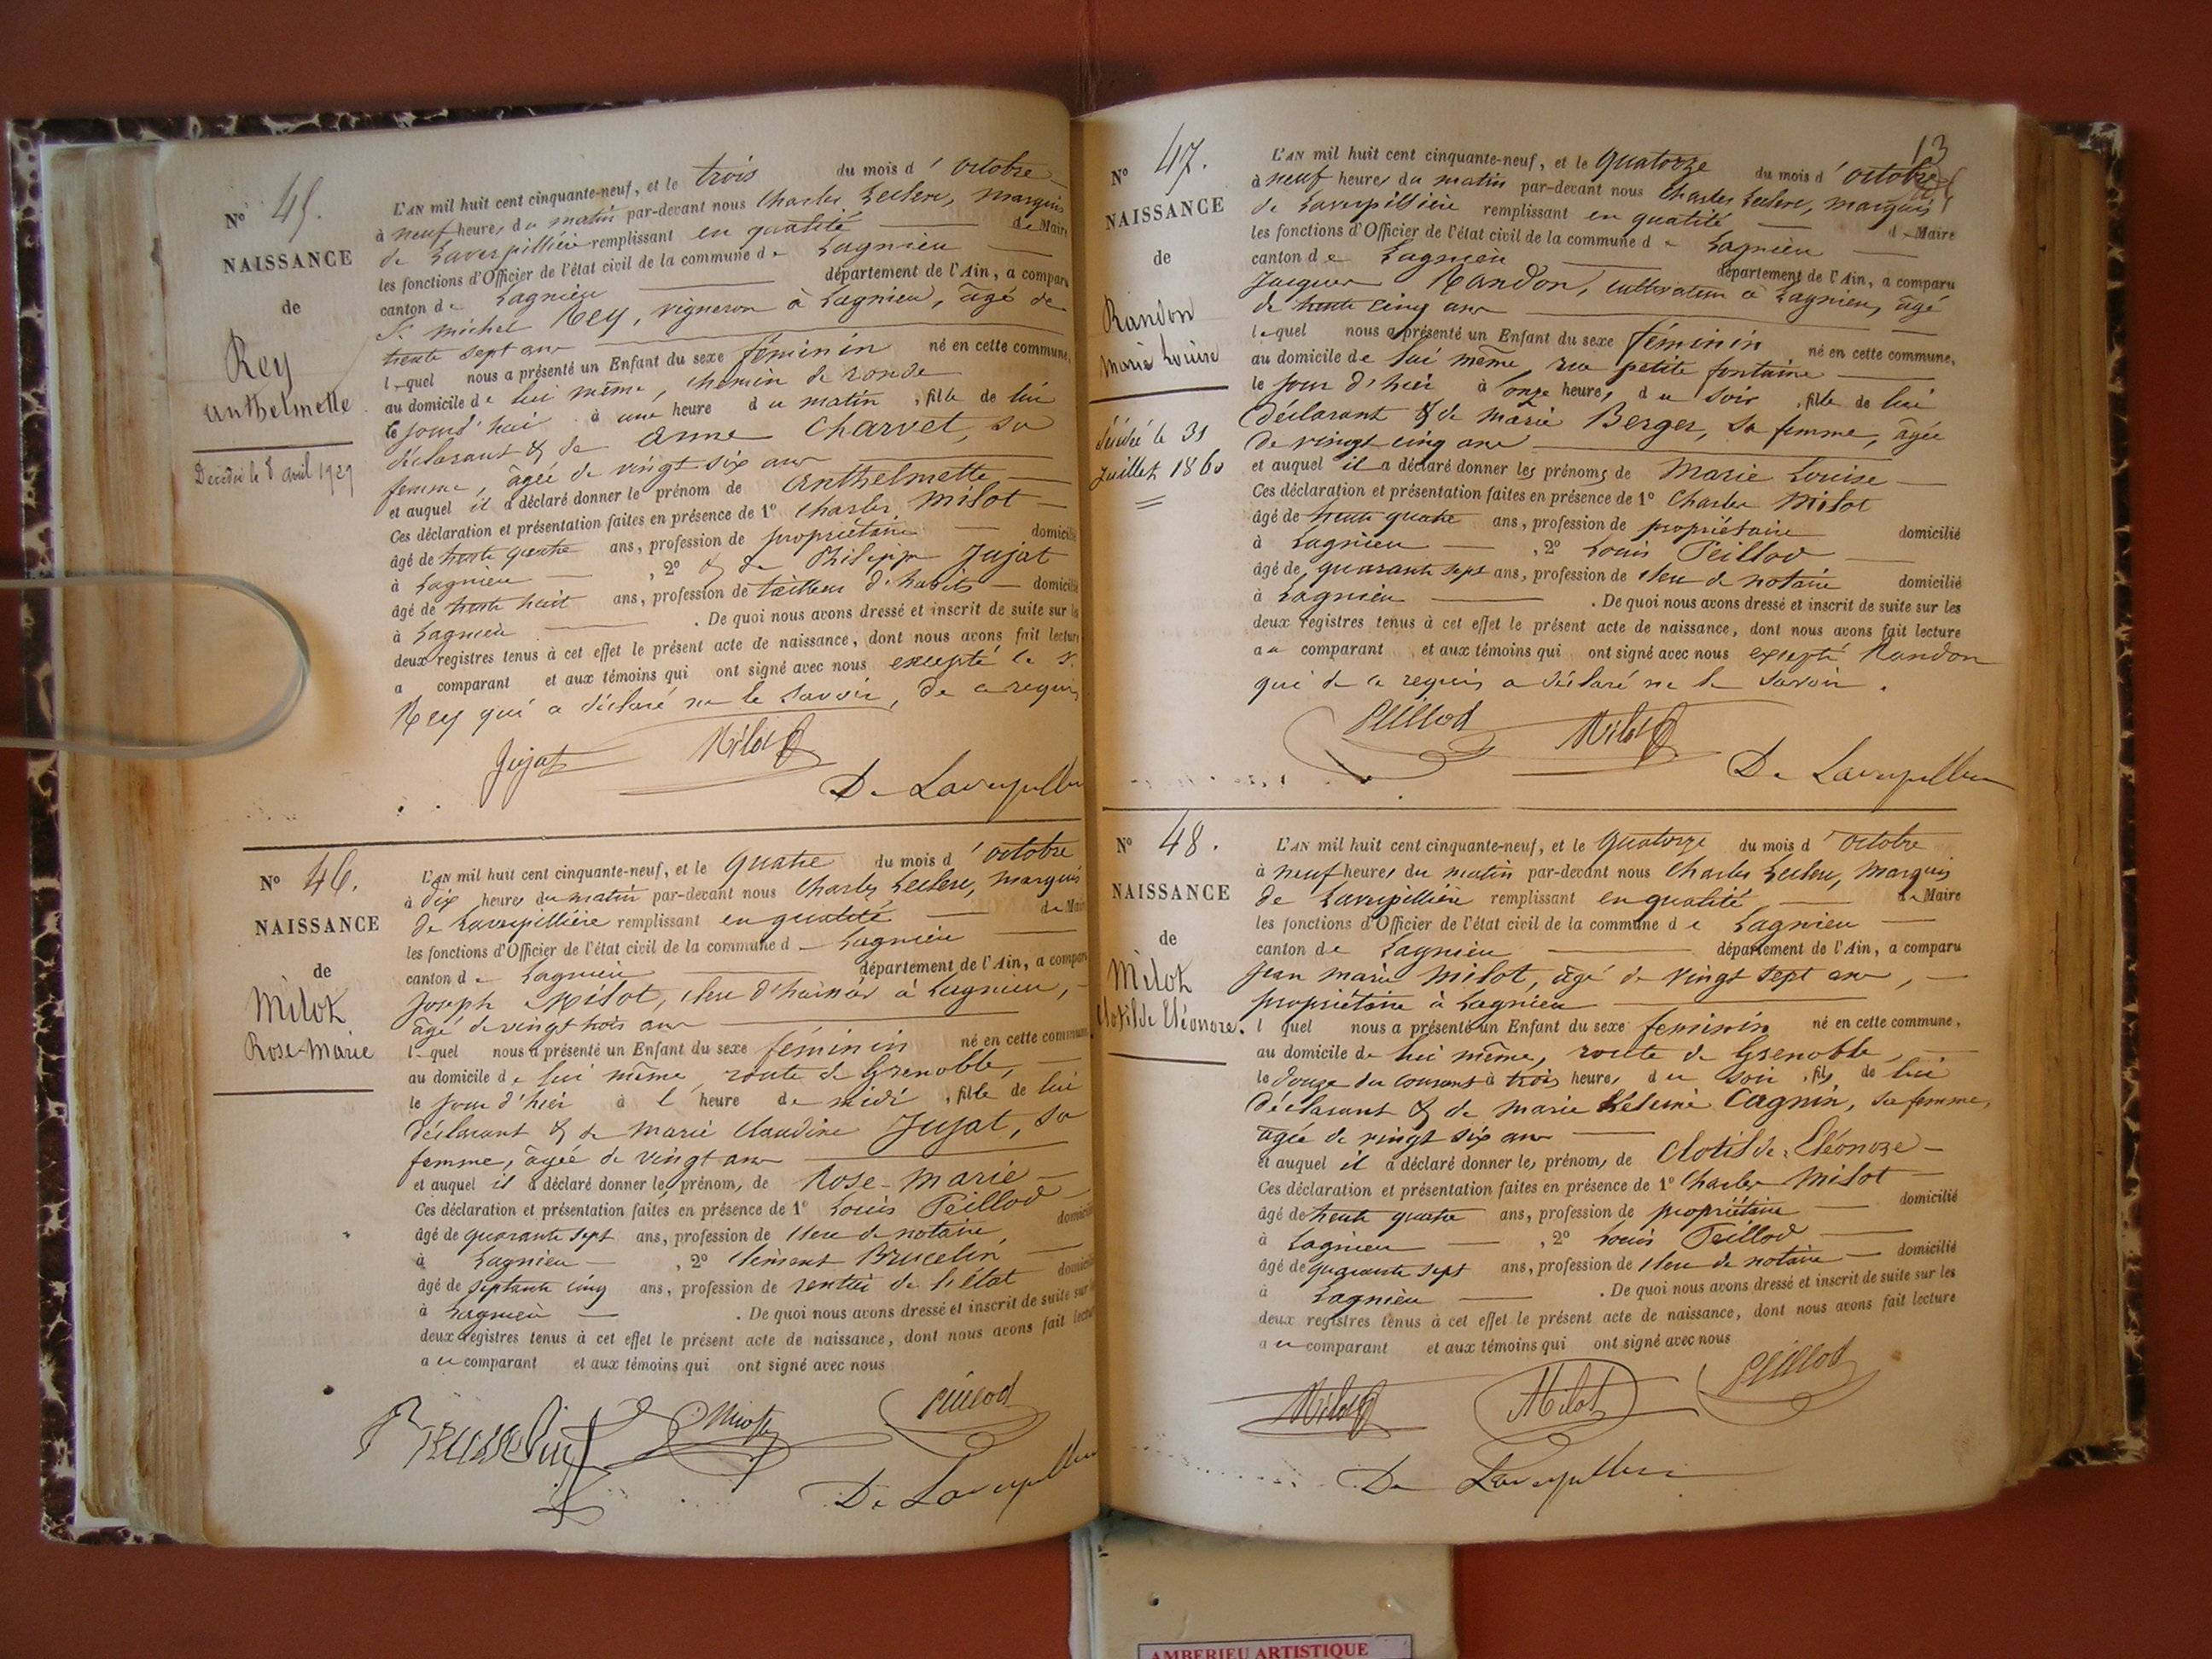 N° 45.
NAISSANCE
de
Rey
Anthelmette
Décédée le 8 avril 1929
L'AN mil huit cent cinquante-neuf, et le trois du mois d'octobre
à neuf heures du matin par-devant nous Charles Leclerc, Marquis
de Laverpillière remplissant en qualité de Maire
les fonctions d'Officier de l'état civil de la commune de Lagnieu
canton de Lagnieu département de l'Ain, a comparu
St michel Rey, vigneron à Lagnieu, âgé de
trente sept ans
lequel nous a présenté un Enfant du sexe féminin né en cette commune,
au domicile de lui même, chemin de ronde
le jourd'hui à une heure du matin, fille de lui
déclarant & de Anne Charvet, sa
femme, âgée de vingt six ans
et auquel il a déclaré donner le prénom de Anthelmette
Ces déclaration et présentation faites en présence de 1° Charles Milot
âgé de trente quatre ans, profession de propriétaire domicilié
à Lagnieu, 2° & de Philippe Jujat
âgé de trente huit ans, profession de tailleur d'habits domicilié
à Lagnieu. De quoi nous avons dressé et inscrit de suite sur les
deux registres tenus à cet effet le présent acte de naissance, dont nous avons fait lecture
a comparant et aux témoins qui ont signé avec nous excepté le s.
Rey qui a déclaré ne le savoir, de ce requis
Jujat Milot
De Laverpillière
N° 46.
NAISSANCE
de
Milot
Rose-Marie
L'AN mil huit cent cinquante-neuf, et le quatre du mois d'octobre
à dix heures du matin par-devant nous Charles Leclerc, marquis
de Laverpillière remplissant en qualité de Maire
les fonctions d'Officier de l'état civil de la commune d Lagnieu
canton de Lagnieu département de l'Ain, a comparu
Joseph Milot, à Lagnieu,
âgé de vingt trois ans
lequel nous a présenté un Enfant du sexe féminin né en cette commune
au domicile de lui même, route de Grenoble,
le jour d'hier à l'heure de midi, fille de lui
déclarant & de Marie Claudine Jujat, sa
femme, âgée de vingt ans
et auquel il a déclaré donner les prénoms de Rose-Marie
Ces déclaration et présentation faites en présence de 1° Louis Peillod
âgé de quarante sept ans, profession de clerc de notaire domicilié
à Lagnieu, 2° Clément Brucelin
âgé de septante cinq ans, profession de rentier de l'état domicilié
à Lagnieu. De quoi nous avons dressé et inscrit de suite sur les
deux registres tenus à cet effet le présent acte de naissance, dont nous avons fait lecture
au comparant et aux témoins qui ont signé avec nous
Milot Peillod
De Laverpillière
13
N° 47.
NAISSANCE
de
Randon
Marie Louise
Décédée le 31
Juillet 1860
L'AN mil huit cent cinquante-neuf, et le quatorze du mois d'octobre
à neuf heures du matin par-devant nous Charles Leclerc, marquis
de Laverpillière remplissant en qualité d Maire
les fonctions d'Officier de l'état civil de la commune de Lagnieu
canton de Lagnieu département de l'Ain, a comparu
Jacques Randon, cultivateur à Lagnieu, âgé
de trente cinq ans
lequel nous a présenté un Enfant du sexe féminin né en cette commune,
au domicile de lui même, rue petite fontaine
le jour d'hier à onze heures du soir, fille de lui
déclarant & de Marie Berger, sa femme, âgée
de vingt cinq ans
et auquel il a déclaré donner les prénoms de Marie Louise
Ces déclaration et présentation faites en présence de 1° Charles Milot
âgé de trente quatre ans, profession de propriétaire domicilié
à Lagnieu, 2° Louis Peillod
âgé de quarante sept ans, profession de clerc de notaire domicilié
à Lagnieu. De quoi nous avons dressé et inscrit de suite sur les
deux registres tenus à cet effet le présent acte de naissance, dont nous avons fait lecture
au comparant et aux témoins qui ont signé avec nous excepté Randon
qui de ce requis a déclaré ne le savoir.
Peillod Milot
De Laverpillière
N° 48.
NAISSANCE
de
Milot
Clotilde Eléonore.
L'AN mil huit cent cinquante-neuf, et le quatorze du mois d'octobre
à neuf heures du matin par-devant nous Charles Leclerc, Marquis
de Laverpillière remplissant en qualité de Maire
les fonctions d'Officier de l'état civil de la commune de Lagnieu
canton de Lagnieu département de l'Ain, a comparu
Jean Marie Milot, âgé de vingt sept ans,
propriétaire à Lagnieu
l quel nous a présenté un Enfant du sexe féminin né en cette commune,
au domicile de lui même, route de Grenoble,
le douze du courant à trois heures du soir, fils de lui
déclarant & de Marie Cagnin, sa femme,
âgée de vingt six ans
et auquel il a déclaré donner les prénoms de Clotilde Eléonore
Ces déclaration et présentation faites en présence de 1° Charles Milot
âgé de trente quatre ans, profession de propriétaire domicilié
à Lagnieu, 2° Louis Peillod
âgé de quarante sept ans, profession de clerc de notaire domicilié
à Lagnieu. De quoi nous avons dressé et inscrit de suite sur les
deux registres tenus à cet effet le présent acte de naissance, dont nous avons fait lecture
au comparant et aux témoins qui ont signé avec nous
Milot Milot Peillod
De Laverpillière
AMBERIEU ARTISTIQUE